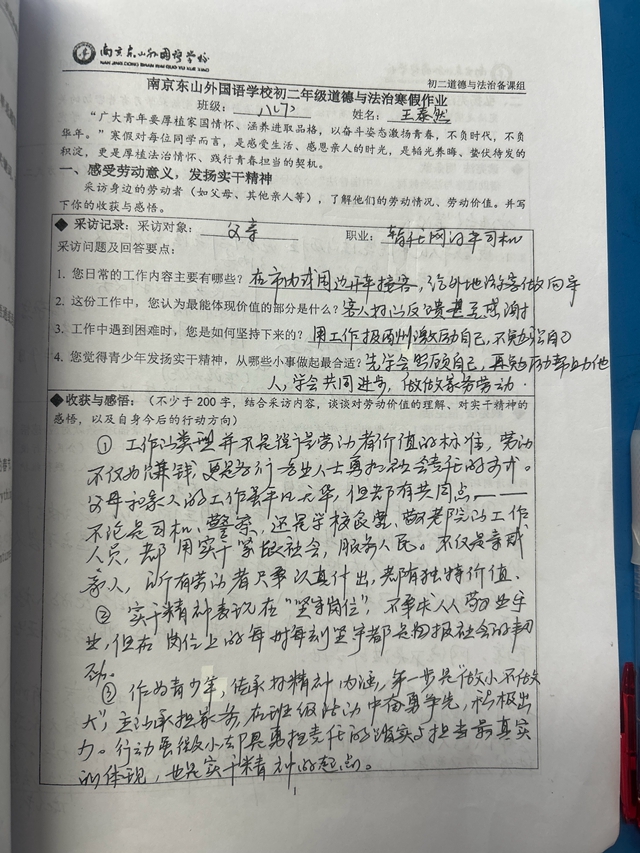 南京东山外国语学校
NAN JING DONG SHAN WAI GUO YU XUE XIAO
初二道德与法治备课组
南京东山外国语学校初二年级道德与法治寒假作业
班级：八(7) 姓名：王泰然
“广大青年要厚植家国情怀、涵养进取品格，以奋斗姿态激扬青春，不负时代，不负
华年。”寒假对每位同学而言，是感受生活、感恩亲人的时光，是韬光养晦、蛰伏待发的
积淀，更是厚植法治情怀、践行青春担当的契机。
一、感受劳动意义，发扬实干精神
采访身边的劳动者（如父母、其他亲人等），了解他们的劳动情况、劳动价值。并写
下你的收获与感悟。
◆ 采访记录：采访对象：父亲 职业：网约车司机
采访问题及回答要点：
1. 您日常的工作内容主要有哪些？在市内或周边开车接客，给外地游客做向导
2. 这份工作中，您认为最能体现价值的部分是什么？客人打心反馈甚至感谢时
3. 工作中遇到困难时，您是如何坚持下来的？用工作报酬激励自己，不勉强自己
4. 您觉得青少年发扬实干精神，从哪些小事做起最合适？先学会照顾自己，再勉励帮助他
人，学会共同进步，做做家务劳动．
◆收获与感悟：（不少于 200 字，结合采访内容，谈谈对劳动价值的理解、对实干精神的
感悟，以及自身今后的行动方向）
① 工作的类型并不是衡量劳动者价值的标准，劳动
不仅为赚钱，更是各行各业人士勇担社会责任的方式。
父母和家人的工作虽平凡无华，但都有共同点——
不论是司机、警察，还是学校食堂、敬老院的工作
人员，都用实干家做社会，服务人民。不仅是亲戚
家人，所有劳动者只要认真付出，都有独特价值．
② 实干精神表现在“坚守岗位”，不要求人人敬业乐
业，但在岗位上的每时每刻坚守都是回报社会的
③ 作为青少年，传承好精神内涵，第一步是“做小不做
大”，主动承担家务，在班级活动中奋勇争先，积极出
力。行动虽微小却是勇担责任的落实与担当最真实
的体现，也是实干精神的起点。
1